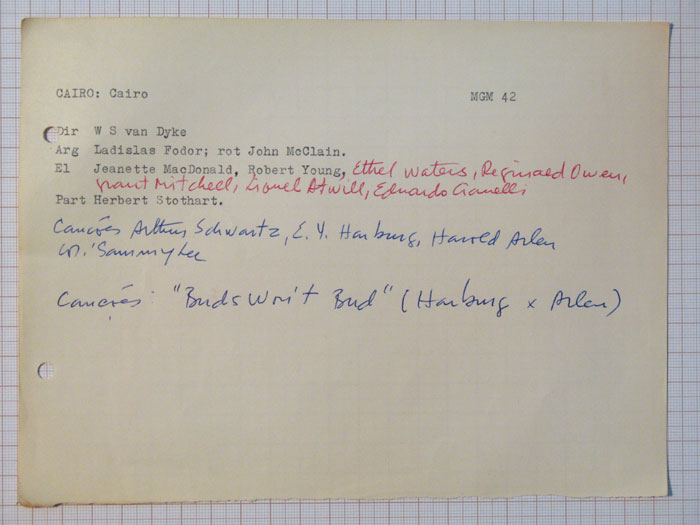 CAIRO: Cairo MGM 42
Dir W S van Dyke
Arg Ladislas Fodor; rot John McClain.
El Jeanette MacDonald, Robert Young, Ethel Waters, Reginald Owen,
Grant Mitchell, Lionel Atwill, Eduardo Cianelli
Part Herbert Stothart.
Canções Arthur Schwartz, E. Y. Harburg, Harold Arlen
Sammy Lee
Canções: "Buds Won't Bud" (Harburg x Arlen)